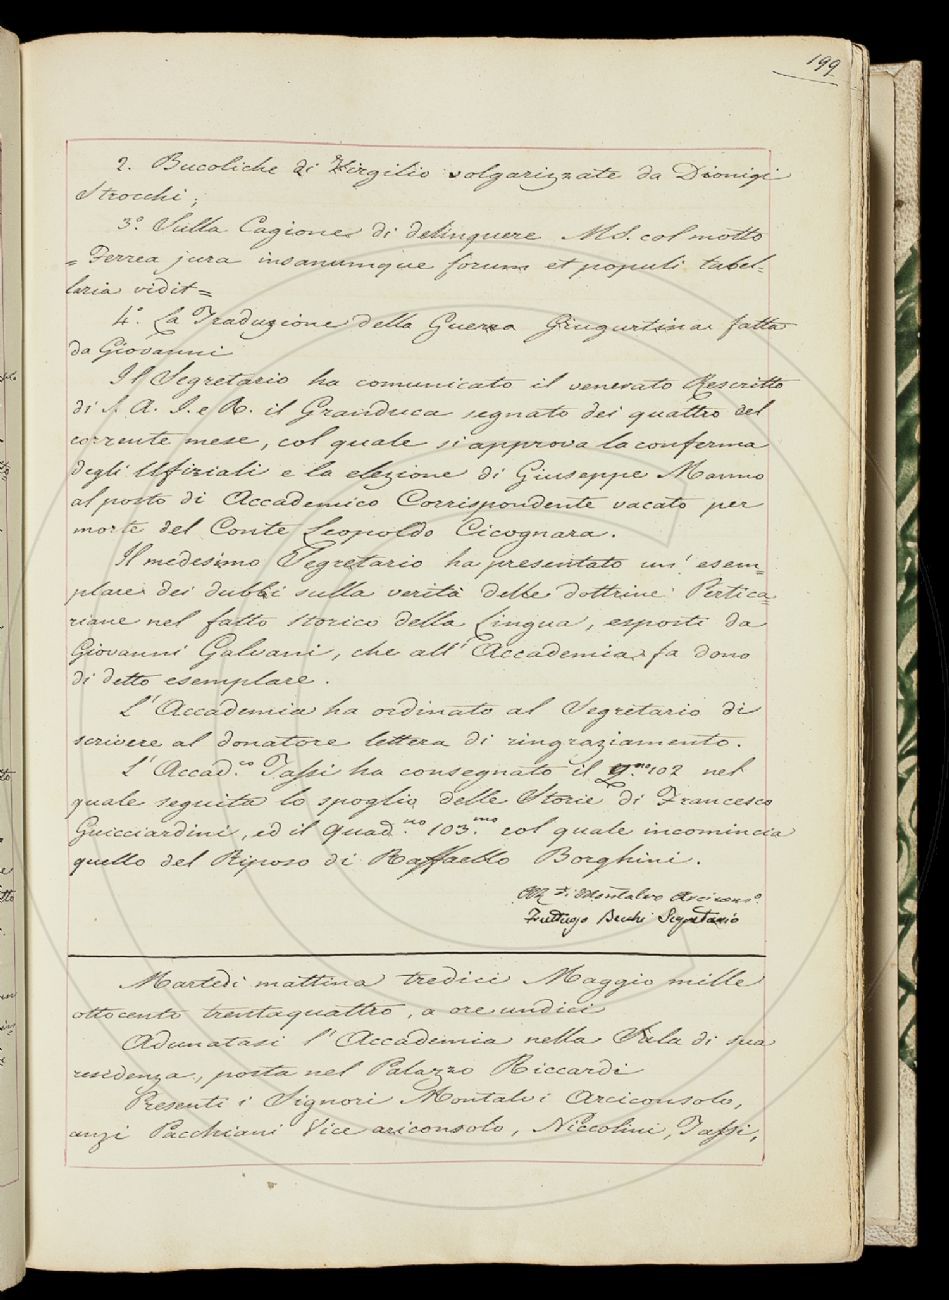 199
2. Bucoliche di Virgilio volgarizzate da Dionigi
Strocchi;
3.° Sulla Cagione di delinquere MS. col motto
= Ferrea jura insanumque forum et populi tabel-
laria vidit =
4.° La Traduzione della Guerra Giugurtina fatta
da Giovanni
Il Segretario ha comunicato il venerato Rescritto
di S. A. I. e R. il Granduca segnato dei quattro del
corrente mese, col quale si approva la conferma
degli Ufiziali e la elezione di Giuseppe Manno
al posto di Accademico Corrispondente vacato per
morte del Conte Leopoldo Cicognara.
Il medesimo Segretario ha presentato un' esem=
plare dei dubbi sulla verità delle dottrine Pertica=
riane nel fatto storico della Lingua, esposti da
Giovanni Galvani, che all' Accademia fa dono
di detto esemplare.
L' Accademia ha ordinato al Segretario di
scrivere al donatore lettera di ringraziamento.
L' Accad.co Tassi ha consegnato il Q.no 102 nel
quale seguita lo spoglio delle Storie di Francesco
Guicciardini, ed il Quad.no 103.mo col quale incomincia
quello del Riposo di Raffaello Borghini.
A. R.di Montalvo Arcicons.o
Fruttuoso Becchi Segretario
Martedì mattina tredici Maggio mille
ottocento trentaquattro, a ore undici
Adunatasi l' Accademia nella Sala di sua
residenza, posta nel Palazzo Riccardi
Presenti i Signori Montalvi Arciconsolo,
anzi Pacchiani Vice arciconsolo, Niccolini, Tassi,